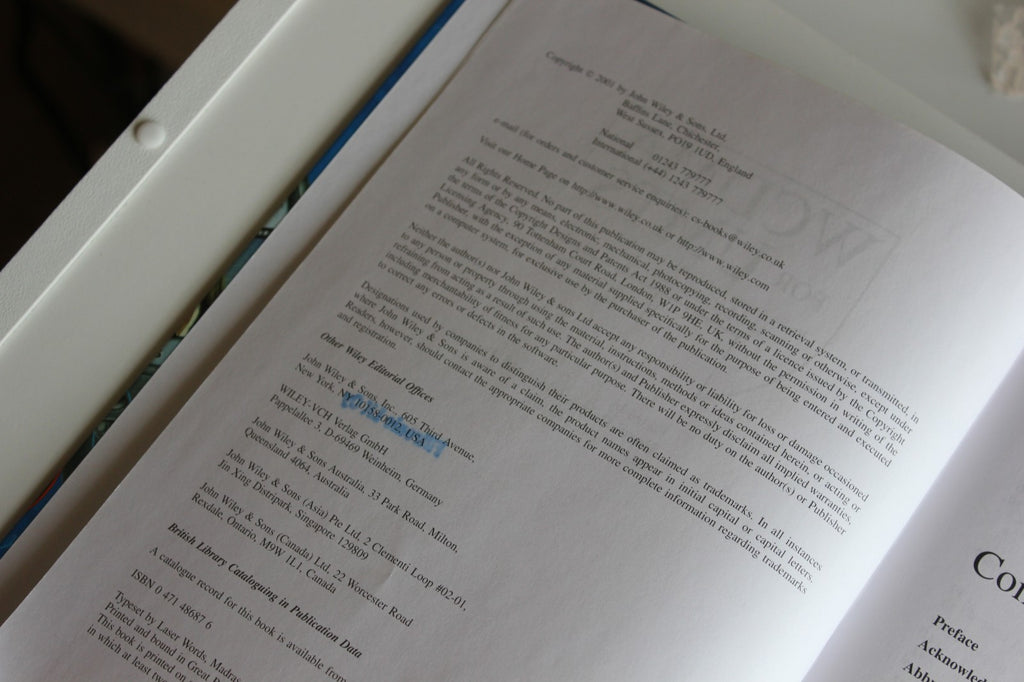 Copyright © 2001 by John Wiley & Sons, Ltd.
Baffins Lane, Chichester,
West Sussex, PO19 1UD, England
National 01243 779777
International (+44) 1243 779777
e-mail (for orders and customer service enquiries): cs-books@wiley.co.uk
Visit our Home Page on http://www.wiley.co.uk or http://www.wiley.com
All Rights Reserved. No part of this publication may be reproduced, stored in a retrieval system, or transmitted, in
any form or by any means, electronic, mechanical, photocopying, recording, scanning or otherwise, except under
the terms of the Copyright Designs and Patents Act 1988 or under the terms of a licence issued by the Copyright
Licensing Agency, 90 Tottenham Court Road, London, W1P 9HE, UK, without the permission in writing of the
Publisher, with the exception of any material supplied specifically for the purpose of being entered and executed
on a computer system, for exclusive use by the purchaser of the publication.
Neither the author(s) nor John Wiley & sons Ltd accept any responsibility or liability for loss or damage occasioned
to any person or property through using the material, instructions, methods or ideas contained herein, or acting or
refraining from acting as a result of such use. The author(s) and Publisher expressly disclaim all implied warranties,
including merchantability of fitness for any particular purpose. There will be no duty on the author(s) or Publisher
to correct any errors or defects in the software.
Designations used by companies to distinguish their products are often claimed as trademarks. In all instances
where John Wiley & Sons is aware of a claim, the product names appear in initial capital or capital letters.
Readers, however, should contact the appropriate companies for more complete information regarding trademarks
and registration.
Other Wiley Editorial Offices
John Wiley & Sons, Inc., 605 Third Avenue,
New York, NY 10158-0012, USA
WILEY-VCH Verlag GmbH
Pappelallee 3, D-69469 Weinheim, Germany
John Wiley & Sons Australia, 33 Park Road, Milton,
Queensland 4064, Australia
John Wiley & Sons (Asia) Pte Ltd, 2 Clementi Loop #02-01,
Jin Xing Distripark, Singapore 129809
John Wiley & Sons (Canada) Ltd, 22 Worcester Road
Rexdale, Ontario, M9W 1L1, Canada
British Library Cataloguing in Publication Data
A catalogue record for this book is available from
ISBN 0 471 48687 6
Typeset by Laser Words, Madras
Printed and bound in Great
This book is printed on
in which at least two
Preface